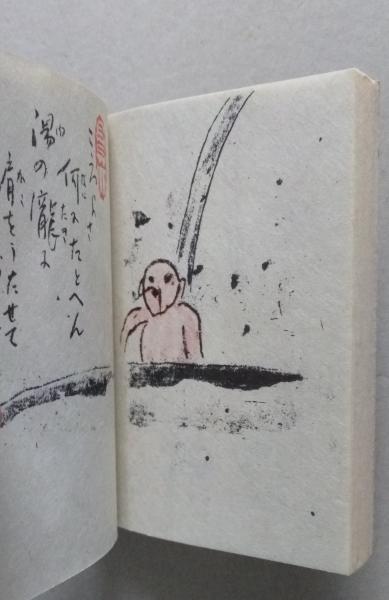 こゝろよさ
何にたとへん
湯の瀧に
肩をうたせて